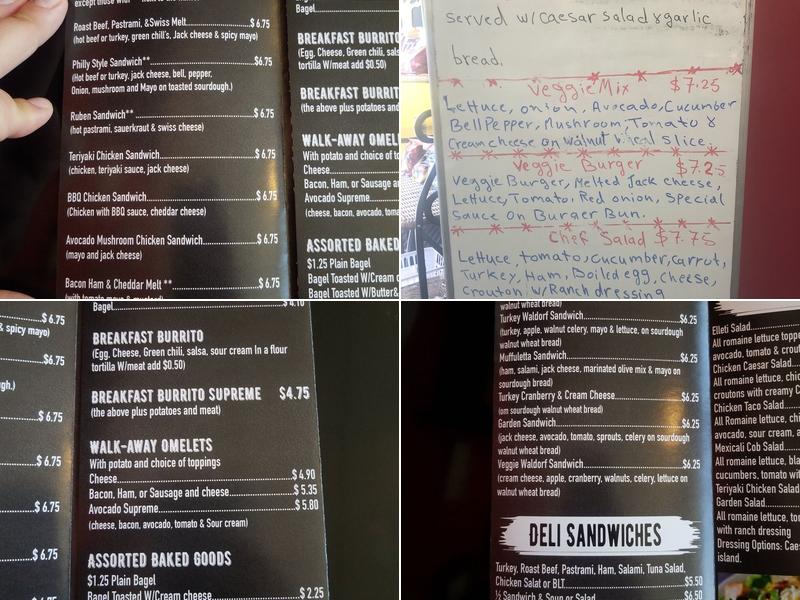 except those with
Roast Beef, Pastrami, &Swiss Melt $ 6.75
(hot beef or turkey, green chill's, Jack cheese & spicy mayo)
Philly Style Sandwich** $6.75
(Hot beef or turkey, jack cheese, bell, pepper,
Onion, mushroom and Mayo on toasted sourdough.)
Ruben Sandwich** $ 6.75
(hot pastrami, sauerkraut & swiss cheese)
Teriyaki Chicken Sandwich $ 6.75
(chicken, teriyaki sauce, jack cheese)
BBQ Chicken Sandwich $ 6.75
(Chicken with BBQ sauce, cheddar cheese)
Avocado Mushroom Chicken Sandwich $ 6.75
(mayo and jack cheese)
Bacon Ham & Cheddar Melt ** $ 6.75
(with tomato mayo & mustard)
Bagel
BREAKFAST BURRITO
(Egg, Cheese, Green chili, sals
tortilla W/meat add $0.50)
BREAKFAST BURRIT
(the above plus potatoes and
WALK-AWAY OMEL
With potato and choice of to
Cheese
Bacon, Ham, or Sausage a
Avocado Supreme
(cheese, bacon, avocado, toma
ASSORTED BAKED
$1.25 Plain Bagel
Bagel Toasted W/Cream c
Bagel Toasted W/Butter&
served w/caesar salad & garlic
bread.
Veggie Mix $7.25
Lettuce, onion, Avocado, Cucumber
Bell Pepper, Mushroom, Tomato &
Cream cheese on walnut wheat slice.
Veggie Burger $7.25
Veggie Burger, Melted Jack cheese,
Lettuce, Tomato, Red onion, Special
Sauce on Burger Bun.
Chef Salad $7.75
Lettuce, tomato, cucumber, carrot,
Turkey, Ham, Boiled egg, cheese,
crouton w/Ranch dressing
$ 6.75
& spicy mayo)
$6.75
ugh.)
$ 6.75
$ 6.75
$ 6.75
$ 6.75
Bagel $ 4.10
BREAKFAST BURRITO
(Egg. Cheese, Green chili, salsa, sour cream In a flour
tortilla W/meat add $0.50)
BREAKFAST BURRITO SUPREME $4.75
(the above plus potatoes and meat)
WALK-AWAY OMELETS
With potato and choice of toppings
Cheese $ 4.90
Bacon, Ham, or Sausage and cheese $ 5.35
Avocado Supreme $ 5.80
(cheese, bacon, avocado, tomato & Sour cream)
ASSORTED BAKED GOODS
$1.25 Plain Bagel
Bagel Toasted W/Cream cheese $ 2.25
walnut wheat bread)
Turkey Waldorf Sandwich $6.25
(turkey, apple, walnut celery, mayo & lettuce, on sourdough
walnut wheat bread)
Muffuletta Sandwich $6.25
(ham, salami, jack cheese, marinated olive mix & mayo on
sourdough bread)
Turkey Cranberry & Cream Cheese $6.25
(om sourdough walnut wheat bread)
Garden Sandwich $6.25
(jack cheese, avocado, tomato, sprouts, celery on sourdough
walnut wheat bread)
Veggie Waldorf Sandwich $6.25
(cream cheese, apple, cranberry, walnuts, celery, lettuce on
walnut wheat bread)
DELI SANDWICHES
Turkey, Roast Beef, Pastrami, Ham, Salami, Tuna Salad,
Chicken Salad or BLT $5.50
½ Sandwich & Soup or Salad $6.50
Elleti Salad
All romaine lettuce toppe
avocado, tomato & crout
Chicken Caesar Salad
All romaine lettuce, chic
croutons with creamy C
Chicken Taco Salad
All Romaine lettuce, chi
avocado, sour cream, a
Mexicali Cob Salad
All romaine lettuce, bla
cucumbers, tomato wit
Teriyaki Chicken Salad
Garden Salad
All romaine lettuce, to
with ranch dressing
Dressing Options: Cae
island.